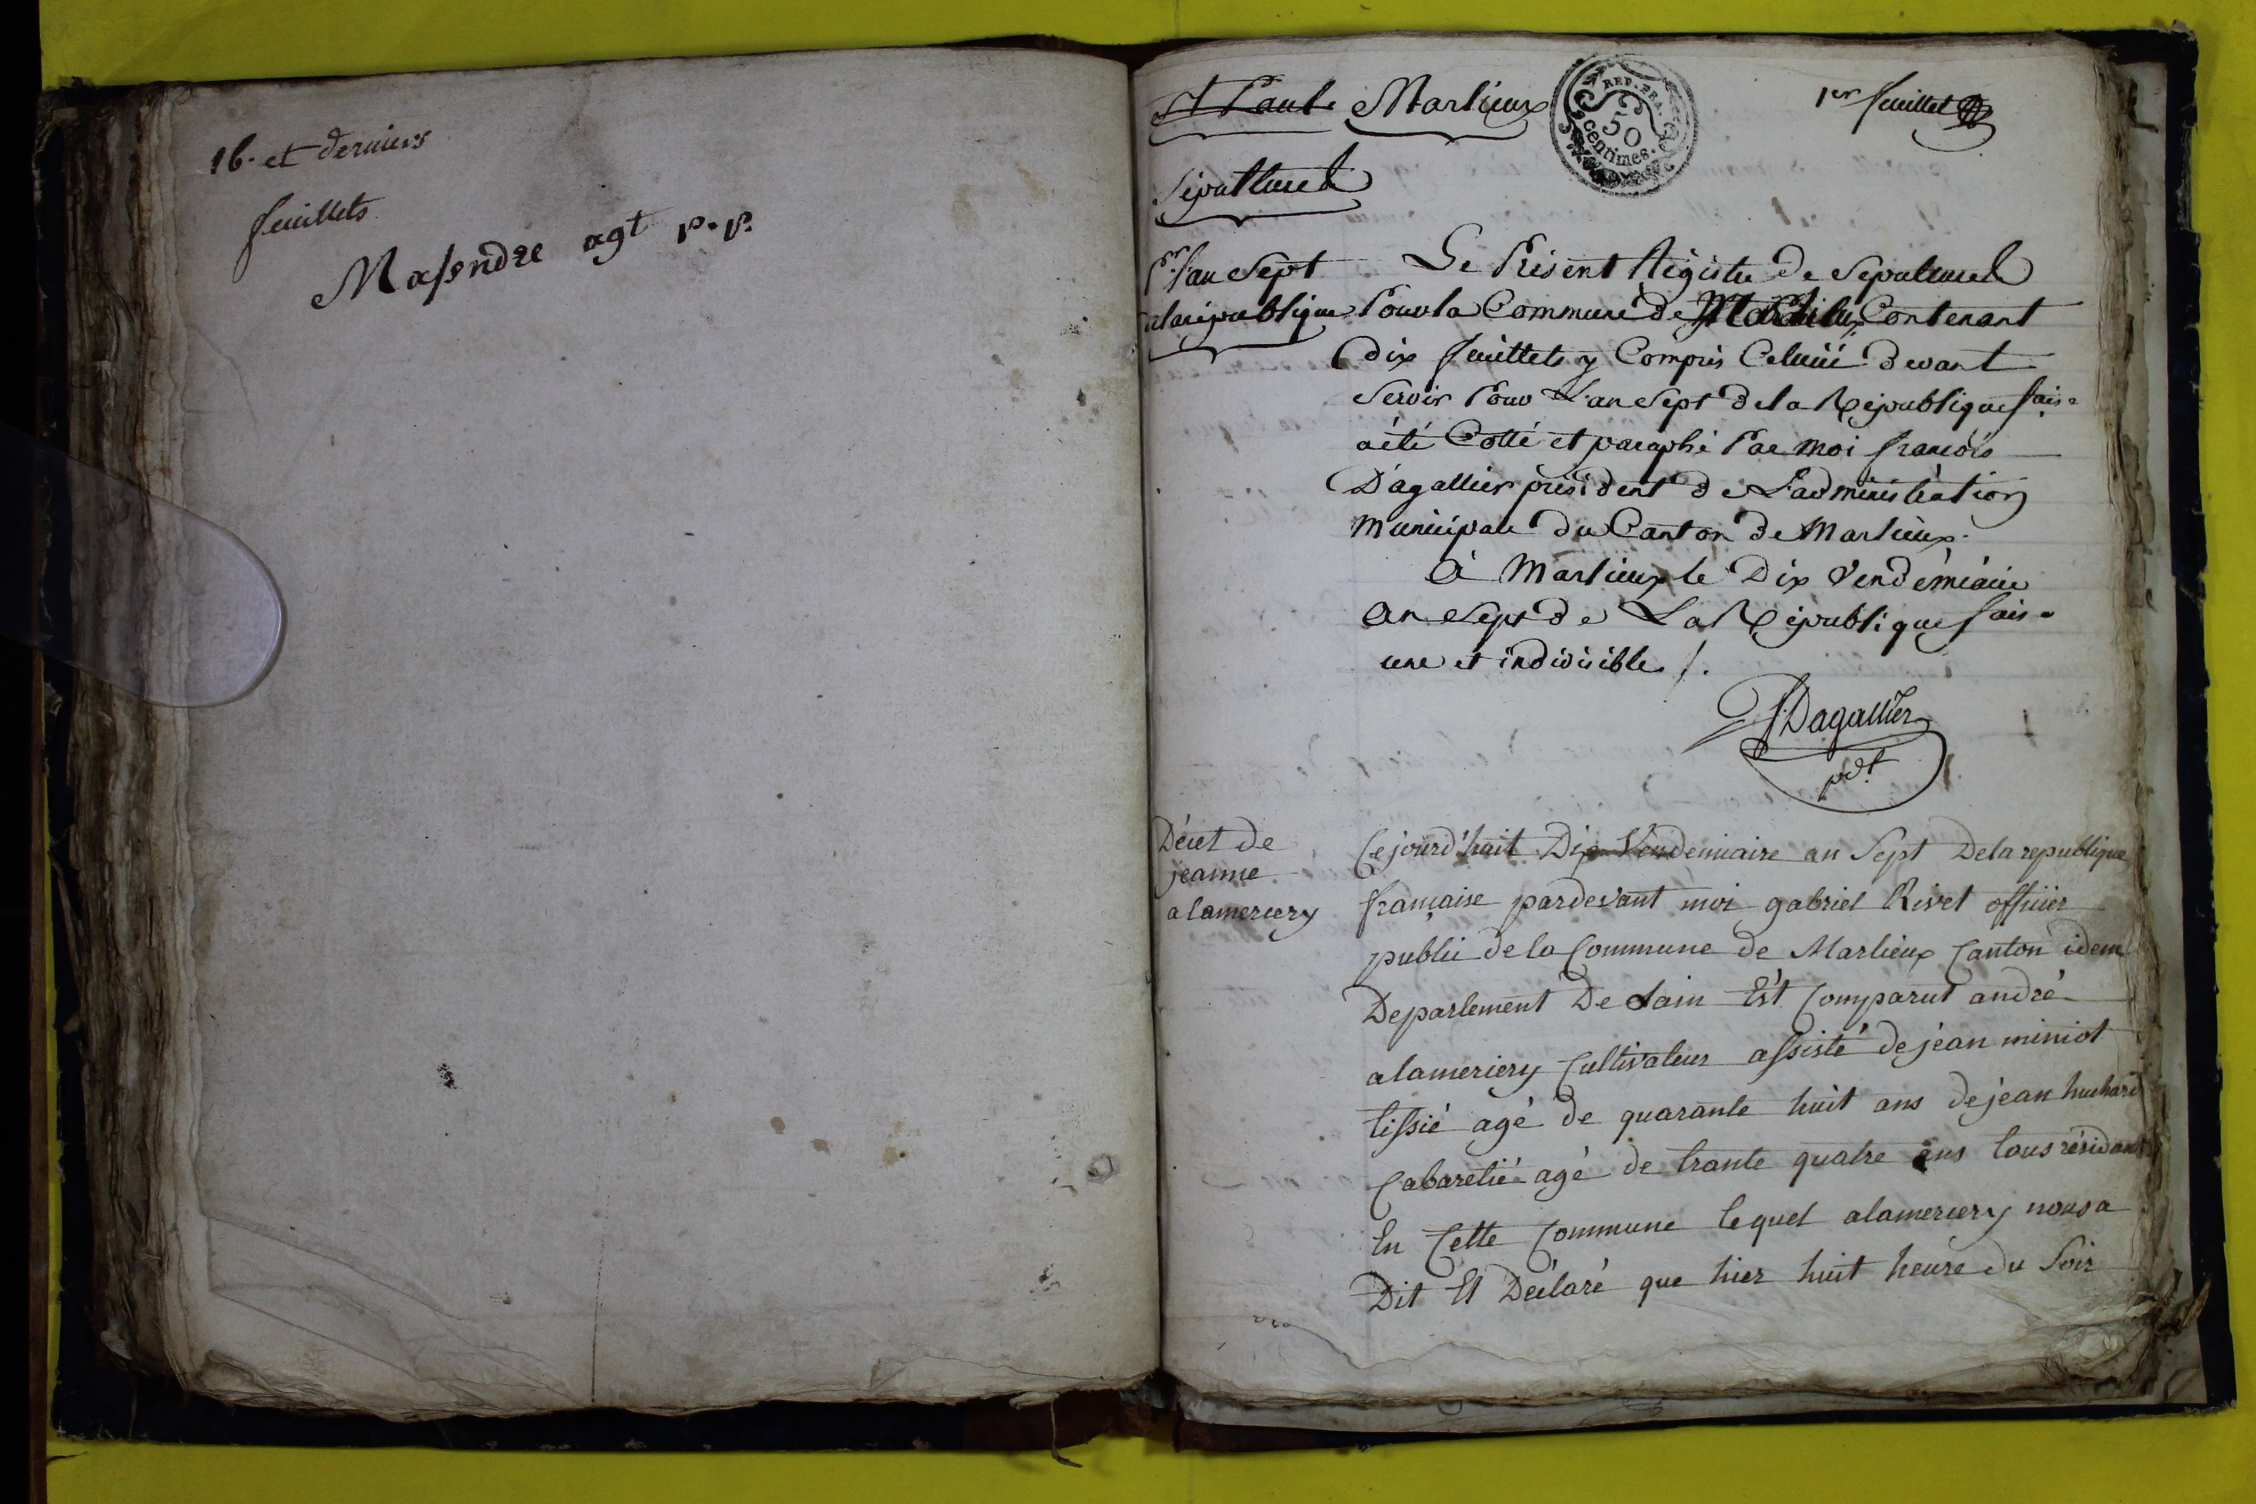 16. et derniers
feuillets
Massondre agt p.p.
St Paul Marlieux
REP. FRA.
50
centimes.
1er feuillet
Sepultures
pr. l'an Sept
de la republique
Le Present Régistre de Sepultures
Pour la Commune de Marlieux Contenant
dix feuillets y Compris Celuici devant
Servir Pour L'an Sept de la République frais.
a été Cotté et paraphé Par Moi françois
D'agallier président de L'administration
Municipale du Canton de Marlieux.
à Marlieux le Dix Vendémiaire
an Sept de La République frais.
une et indivisible /.
f. Dagallier
pdt.
Décet de
jeanne
alamercery
Cejourd'huit Dix Vendemiaire an Sept Dela republique
française pardevant moi gabriel Rivet officier
public de la Commune de Marlieux Canton idem
Departement De Lain Est Comparut andré
alamerciery Cultivateur assisté de jéan miniot
tissié agé de quarante huit ans de jéan huchard
Cabaretié agé de trante quatre ans tous résidants
En Cette Commune lequel alamercery nous a
Dit Et Déclaré que hier huit heure du Soir